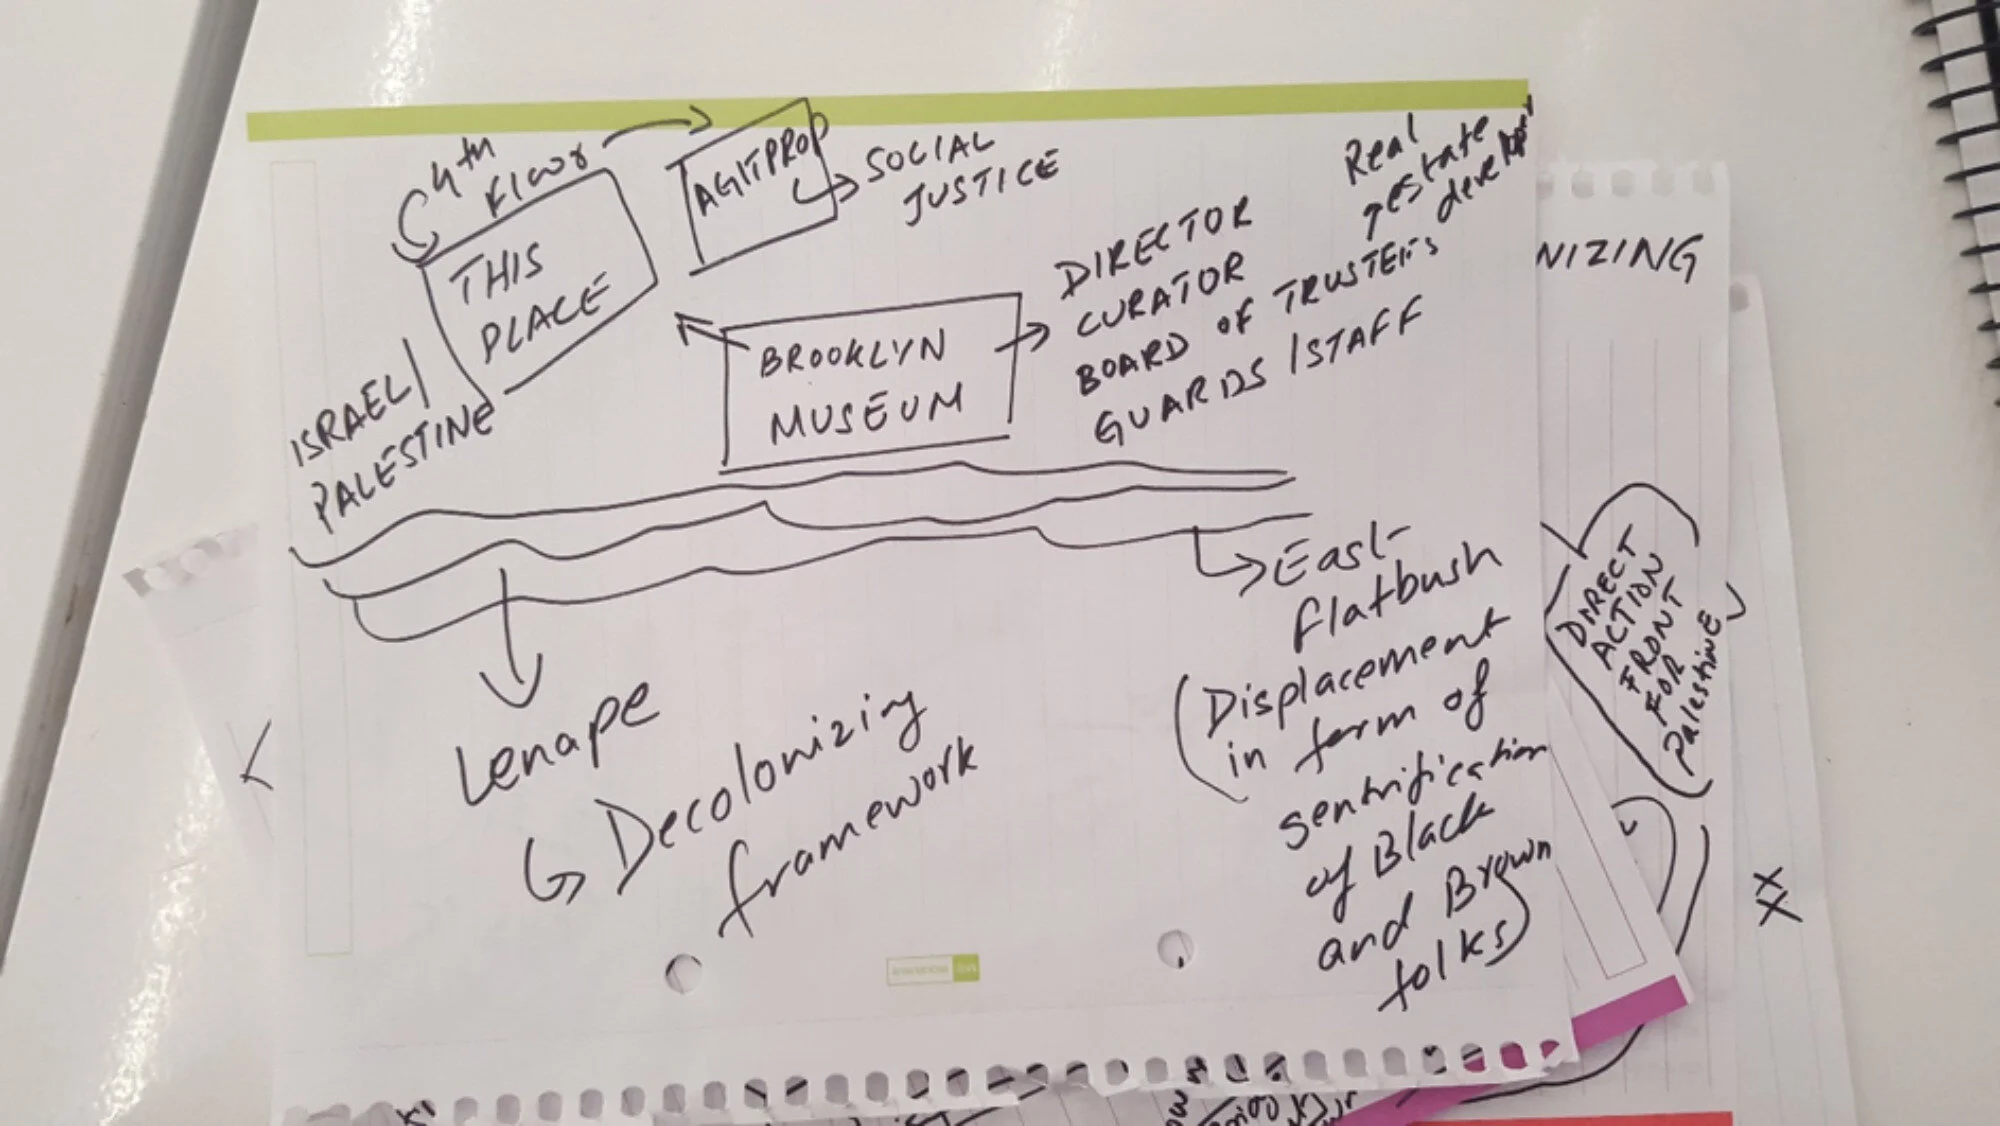 4th
Floor
AGITPROP
SOCIAL
JUSTICE
Real
estate
THIS
PLACE
ISRAEL/
PALESTINE
BROOKLYN
MUSEUM
DIRECTOR
CURATOR
BOARD OF TRUSTEES
GUARDS / STAFF
NIZING
East
flatbush
(Displacement
in form of
gentrification
of Black
and Brown
folks)
Lenape
Decolonizing
framework
DIRECT
ACTION
FRONT
FOR
PalestinE